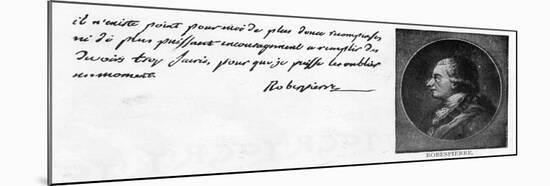 il n'existe point pour moi de plus douces récompenses
ni de plus puissant encouragement a remplir des
devoirs trop sacrés, pour que je puisse les oublier
un moment.
Robespierre
ROBESPIERRE.